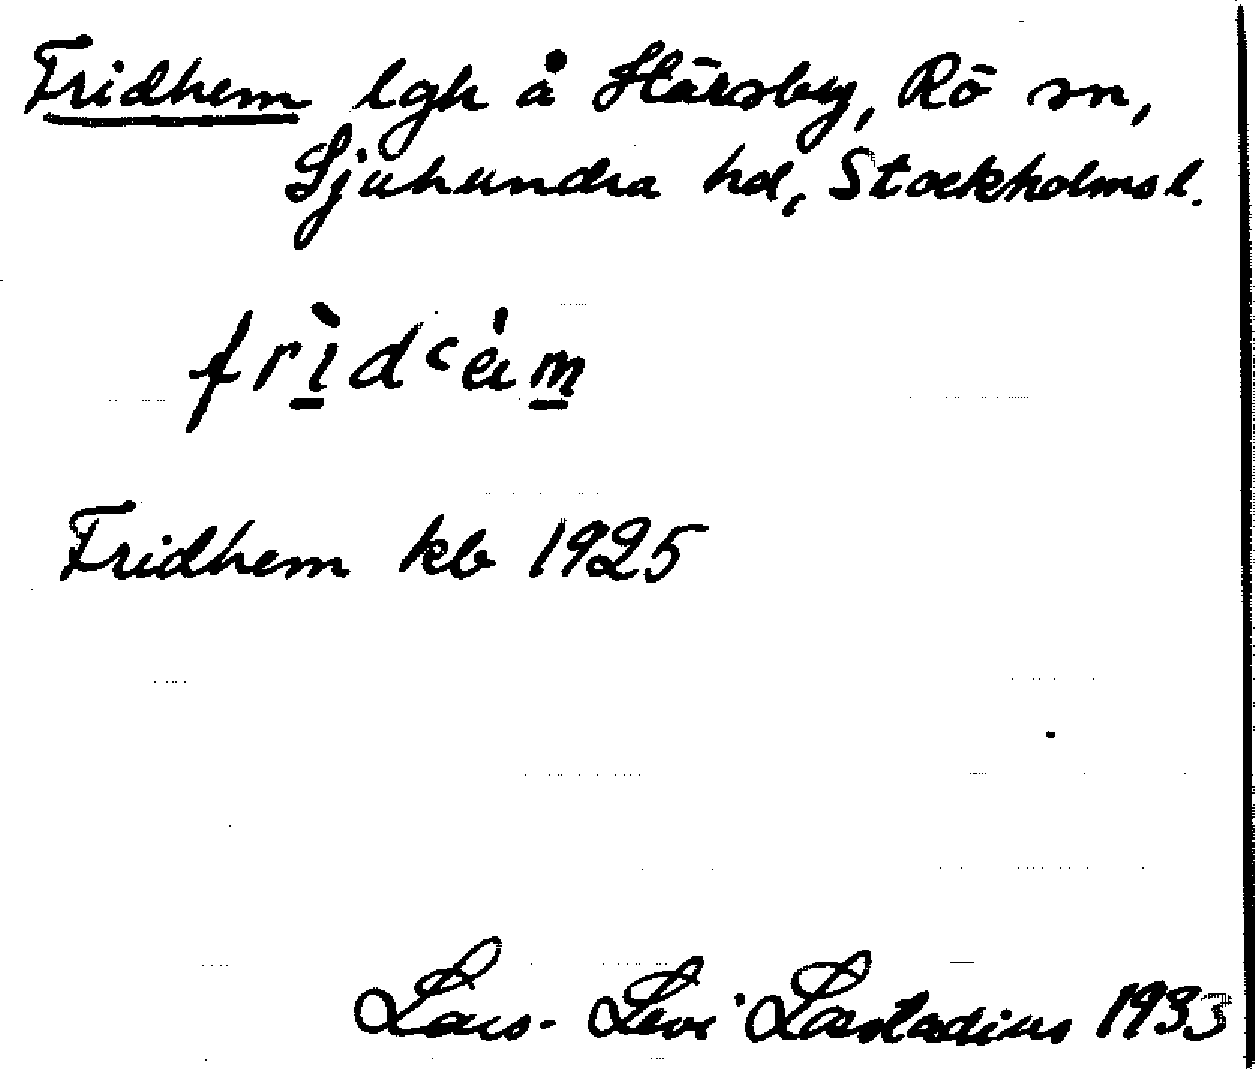 Fridhem lgh å Härsby, Rö sn,
Sjuhundra hd, Stockholms l.
Fridhem kb 1925
Lars-Levi Læstadius 1933